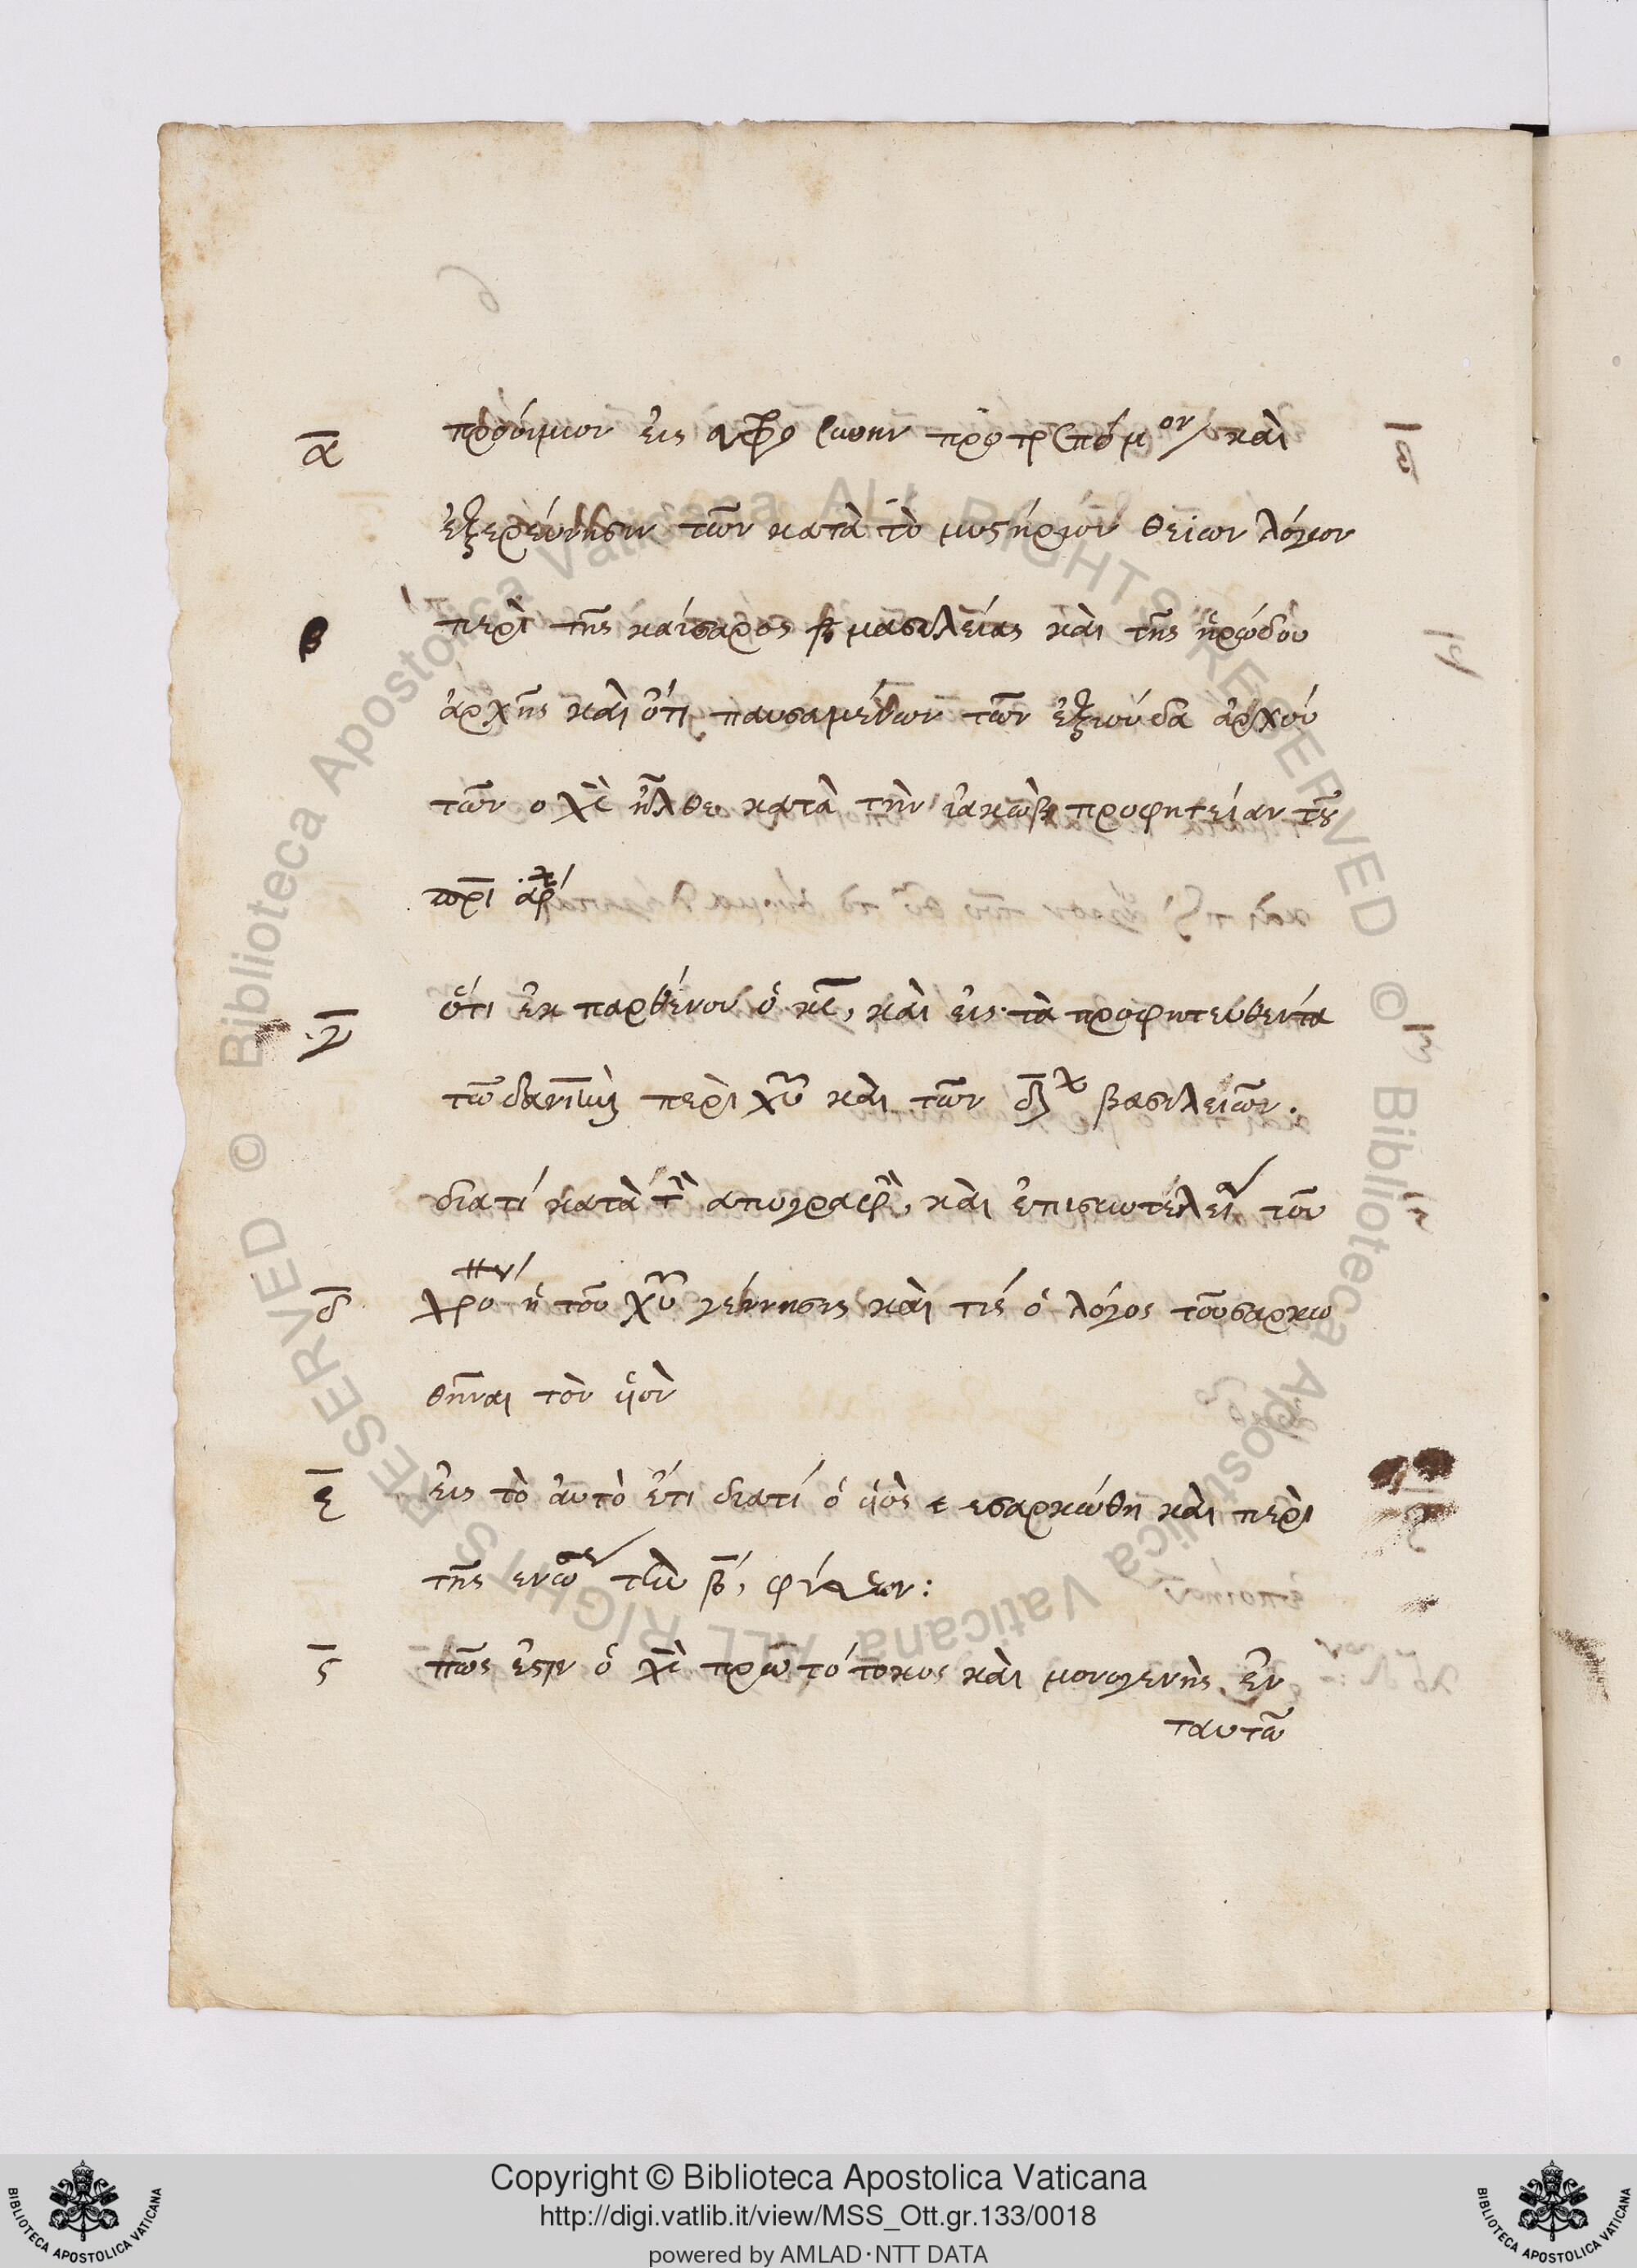 ᾱ
προοίμιον εἰς προτρεπόμον καὶ
ἐξερεύνησιν τῶν κατὰ τὸ μυστήριον θείων λόγων
β
περὶ τῆς καίσαρος μασιλείας καὶ τῆς ἡρώδου
ἀρχῆς καὶ ὅτι παυσαμένων τῶν ἐξιούδα ἀρχόν
τῶν ο χς ἦλθε κατὰ τὴν ἰακὼβ προφητείαν τοῦ
πρι
γ̄
ὅτι ἐκ παρθένου ὁ κς, καὶ εἰς τὰ προφητευθέντα
τῶ δανιὴλ περὶ χυ καὶ τῶν δ βασιλειῶν.
διατί κατὰ τὴν απογραφὴν, καὶ τὸν
δ̄
χρο ἡ τοῦ χυ γέννησις καὶ τίς ὁ λόγος τοῦ σαρκω
θῆναι τὸν υἱὸν
ε̄
εἰς τὸ αὐτὸ ἔτι διατί ὁ υἱὸς εσαρκώθη καὶ περὶ
τῆς ενώσε τῶν β, φύσεων:
ϛ̄
πῶς ἐστιν ὁ χς πρωτότοκος καὶ μονογενὴς ἐν
ταυτῶ
Copyright © Biblioteca Apostolica Vaticana
http://digi.vatlib.it/view/MSS_Ott.gr.133/0018
powered by AMLAD·NTT DATA
BIBLIOTECA APOSTOLICA VATICANA
BIBLIOTECA APOSTOLICA VATICANA
© Biblioteca Apostolica Vaticana ALL RIGHTS RESERVED © Biblioteca Apostolica Vaticana ALL RIGHTS RESERVED